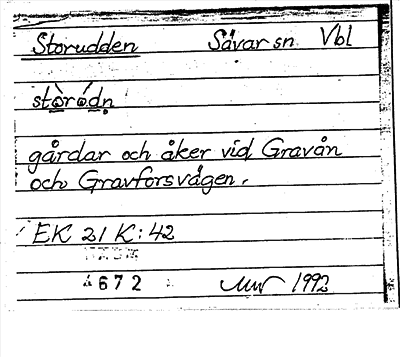 Storudden Sävar sn Vbl
stòródn
gårdar och åker vid Gravån
och Gravforsvägen.
EK 21 K:42
4672 1992